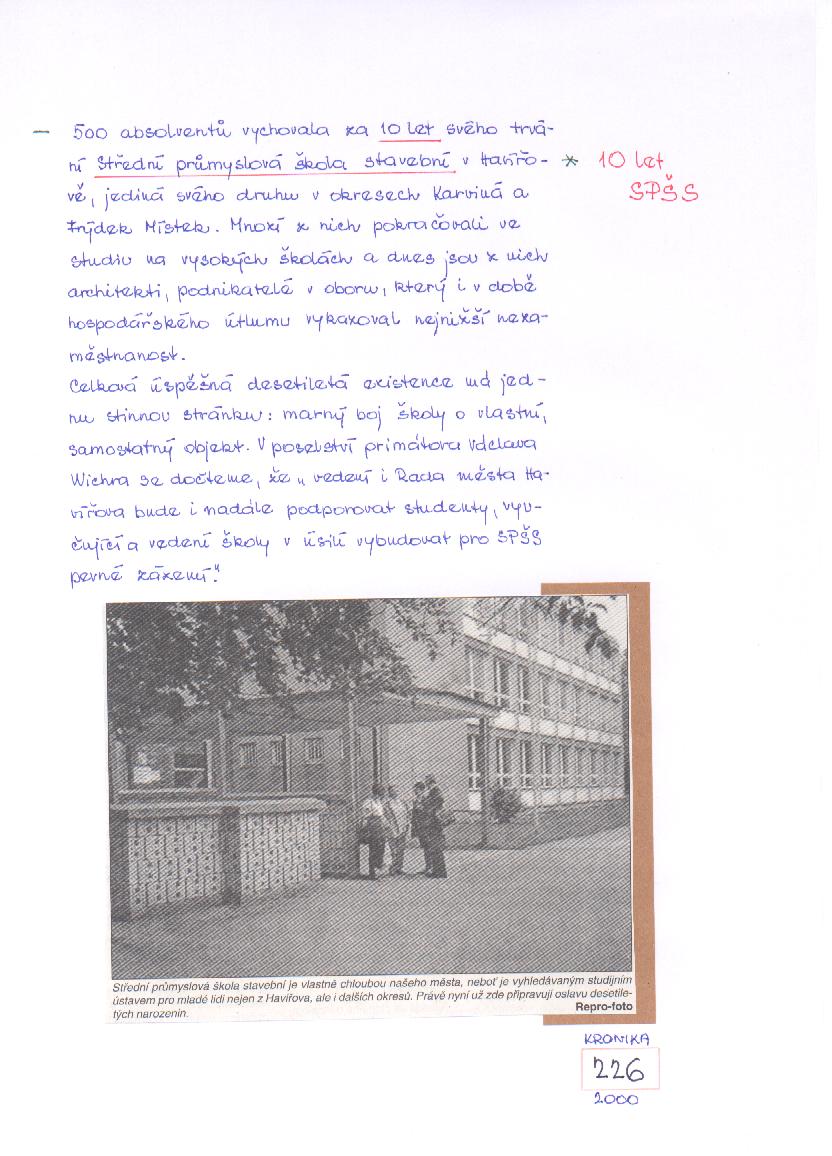 – 500 absolventů vychovala za 10 let svého trvá-
ní Střední průmyslová škola stavební v Havířo- * 10 let
vě, jediná svého druhu v okresech Karviná a SPŠS
Frýdek Místek. Mnozí z nich pokračovali ve
studiu na vysokých školách a dnes jsou z nich
architekti, podnikatelé v oboru, který i v době
hospodářského útlumu vykazoval nejnižší neza-
městnanost.
Celková úspěšná desetiletá existence má jed-
nu stinnou stránku: marný boj školy o vlastní,
samostatný objekt. V poselství primátora Václava
Wichra se dočteme, že „ vedení i Rada města Ha-
vířova bude i nadále podporovat studenty, vyu-
čující a vedení školy v úsilí vybudovat pro SPŠS
pevné zázemí."
Střední průmyslová škola stavební je vlastně chloubou našeho města, neboť je vyhledávaným studijním
ústavem pro mladé lidi nejen z Havířova, ale i dalších okresů. Právě nyní už zde připravují oslavu desetile-
tých narozenin. Repro-foto
KRONIKA
226
2000